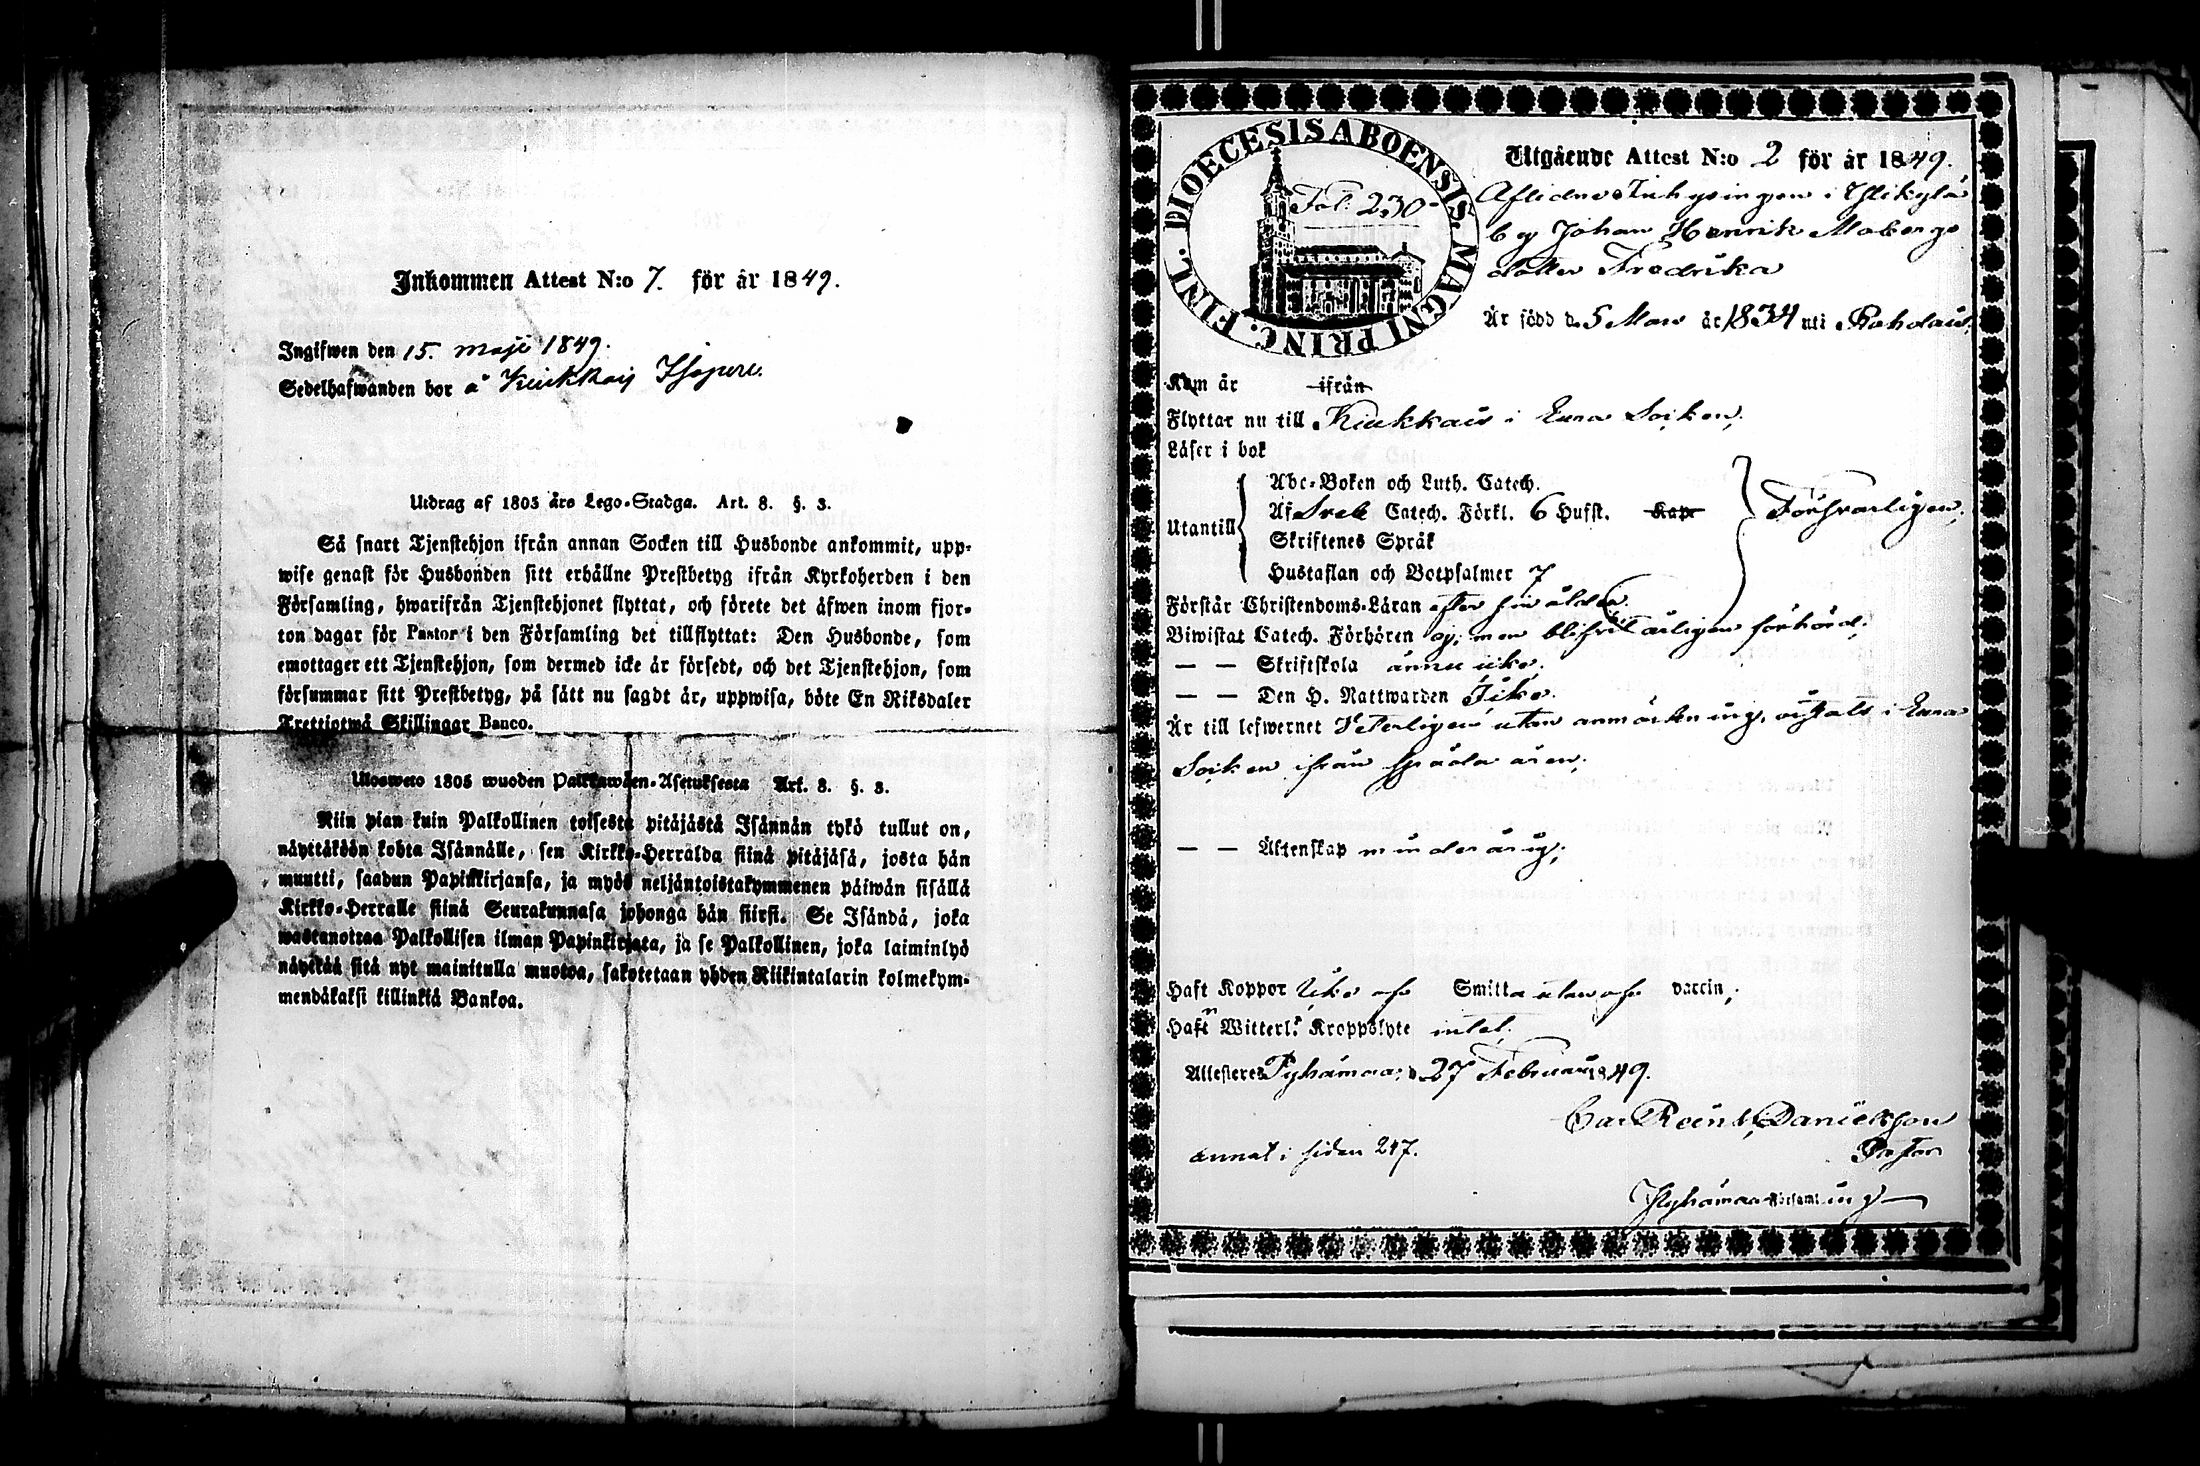 Inkommen Attest N:o 7. för år 1849.
Ingifwen den 15. Maji 1849.
Sedelhafwanden bor å Kiukkais
Utdrag af 1805 års Lego-Stadga. Art. 8. §. 3.
Så snart Tjenstehjon ifrån annan Socken till Husbonde ankommit, upp-
wise genast för Husbonden sitt erhållne Prestbetyg ifrån Kyrkoherden i den
Församling, hwarifrån Tjenstehjonet flyttat, och förete det äfwen inom fjor-
ton dagar för Pastor i den Församling det tillflyttat: Den Husbonde, som
emottager ett Tjenstehjon, som dermed icke är försedt, och det Tjenstehjon, som
försummar sitt Prestbetyg, på sätt nu sagdt är, uppwisa, böte En Riksdaler
Trettiotwå Skillingar Banco.
Ulosweto 1805 wuoden Palkkawäen-Asetuksesta Art. 8. §. 3.
Niin pian kuin Palkollinen toisesta pitäjästä Isännän tykö tullut on,
näyttäköön kohta Isännälle, sen Kirkko-Herralda siinä pitäjäsä, josta hän
muutti, saadun Papinkirjansa, ja myös neljäntoistakymmenen päiwän sisällä
Kirkko-Herralle siinä Seurakunnasa johonga hän siirsi. Se Isändä, joka
wastanottaa Palkollisen ilman Papinkirjata, ja se Palkollinen, joka laiminlyö
näyttää sitä nyt mainitulla muotoa, sakotetaan yhden Riikintalarin kolmekym-
mendäkaksi killinkiä Bankoa.
DIOECESIS ABOENSIS. MAGNI PRINC. FINL.
Fol. 230
Utgående Attest N:o 2 för år 1849.
Aflidne Inhysingen i Ylikylä
by Johan Henrik Mobergs
dotter Fredrika
Är född d. 5 Mars år 1834 uti
Kom år ifrån
Flyttar nu till Kiukkais i Eura Socken;
Läser i bok
Utantill
Abc-Boken och Luth. Catech.
Af Sveb Catech. Förkl. 6 Hufst. Kap.
Skriftenes Språk
Hustaflan och Botpsalmer 7
Försvarligen;
Förstår Christendoms-Läran efter sin ålder.
Biwistat Catech. Förhören ej, men blifvit årligen förhörd;
— — Skriftskola ännu icke.
— — Den H. Nattwarden Icke.
Är till lefwernet utan anmärkning, vistats i Eura
Socken ifrån späda åren;
— — Äktenskap minderårig;
Haft Koppor Icke Smitta utan vaccin;
Haft Witterl. Kroppslyte intet.
Attesteres Pyhämaa, d. 27 Februari 1849.
Car Reinh. Danielsson
Pastor
annat i sidan 247.
Pyhämaa Församling